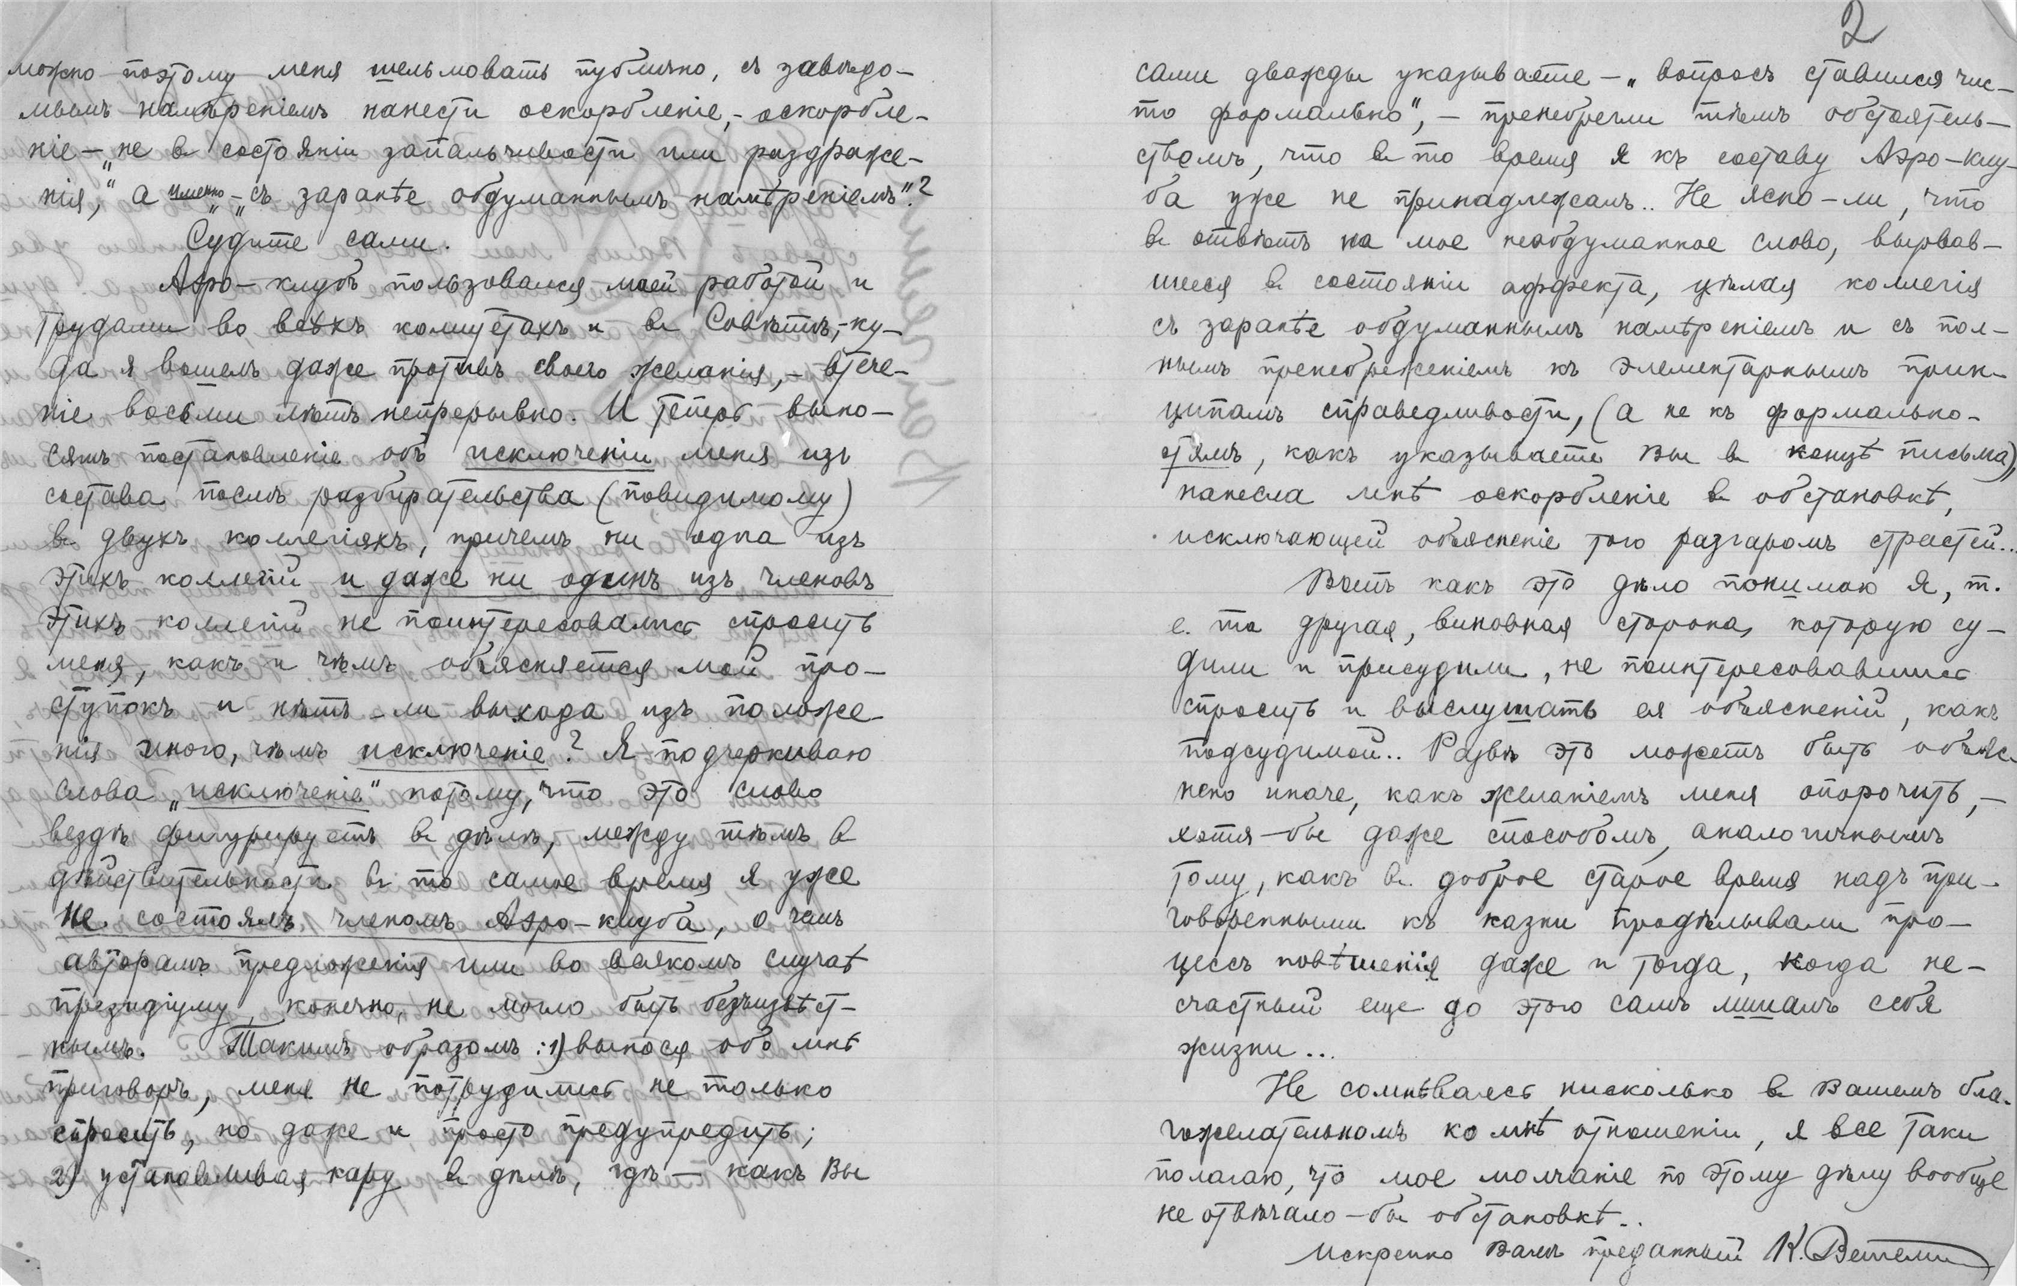 можно поэтому меня шельмовать публично, съ завѣдо-
мымъ намѣреніемъ нанести оскорбленіе,- оскорбле-
ніе — не в состояніи „запальчивости или раздраже-
нія“, а именно — „съ заранѣе обдуманнымъ намѣреніемъ“?
Судите сами.
Аэро-клубъ пользовался моей работой и
трудами во всѣхъ комитетахъ и в Совѣтѣ,-ку-
да я вошелъ даже противъ своего желанія,- втече-
ніе восьми лѣтъ непрерывно. И теперь выно-
сятъ постановленіе объ исключеніи меня изъ
состава послѣ разбирательства (повидимому)
в двухъ коллегіяхъ, причемъ ни одна изъ
этихъ коллегій и даже ни одинъ изъ членовъ
этихъ коллегій не поинтересовались спросить
меня, какъ и чѣмъ объясняется мой про-
ступокъ и нѣтъ-ли выхода изъ положе-
нія иного, чѣмъ исключеніе? Я подчеркиваю
слова „исключеніе“ потому, что это слово
вездѣ фигурируетъ в дѣлѣ, между тѣмъ в
дѣйствительности в то самое время я уже
не состоялъ членомъ Аэро-клуба, о чемъ
авторамъ предложенія или во всякомъ случаѣ
президіуму, конечно, не могло быть безъизвѣст-
нымъ. Такимъ образомъ: 1) вынося обо мнѣ
приговоръ, меня не потрудились не только
спросить, но даже и просто предупредить;
2) устанавливая кару в дѣлѣ, гдѣ — какъ Вы
2
сами дважды указываете — „вопросъ ставился чис-
то формально“, — пренебрегли тѣмъ обстоятель-
ствомъ, что в то время я къ составу Аэро-клу-
ба уже не принадлежалъ.. Не ясно-ли, что
в отвѣтъ на мое необдуманное слово, вырвав-
шееся в состояніи аффекта, цѣлая коллегія
съ заранѣе обдуманнымъ намѣреніемъ и съ пол-
нымъ пренебреженіемъ къ элементарнымъ прин-
ципамъ справедливости, (а не къ формально-
стямъ, какъ указываете Вы в концѣ письма),
нанесла мнѣ оскорбленіе в обстановкѣ,
исключающей объясненіе того разгаромъ страстей...
Вотъ какъ это дѣло понимаю я, т.
е. та другая, виновная сторона, которую су-
дили и присудили, не поинтересовавшись
спросить и выслушать ея объясненій, какъ
подсудимой.. Развѣ это можетъ быть объяс-
нено иначе, какъ желаніемъ меня опорочить, —
хотя-бы даже способомъ, аналогичнымъ
тому, какъ в доброе старое время надъ при-
говоренными къ казни продѣлывали про-
цессъ повѣшенія даже и тогда, когда не-
счастный еще до этого самъ лишалъ себя
жизни...
Не сомнѣваясь нисколько в Вашемъ бла-
гожелательномъ ко мнѣ отношеніи, я все таки
полагаю, что мое молчаніе по этому дѣлу вообще
не отвѣчало-бы обстановкѣ..
Искренно Вамъ преданный К.